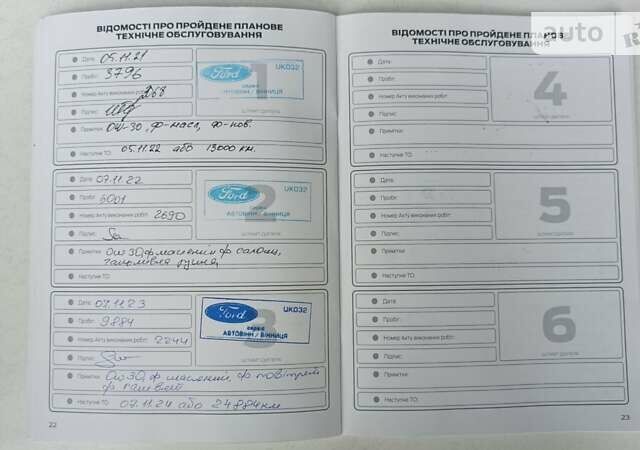 ВІДОМОСТІ ПРО ПРОЙДЕНЕ ПЛАНОВЕ
ТЕХНІЧНЕ ОБСЛУГОВУВАННЯ
Дата: 05.11.21
Пробіг: 3796
Номер Акту виконаних робіт: 268
Підпис:
Примітки: 0W-30, ф-масл, ф-пов.
Наступне ТО: 05.11.22 або 13000 км.
1
Ford
UK032
сервіс
АВТОВІНН / ВІННИЦЯ
ШТАМП ДИЛЕРА
Дата: 07.11.22
Пробіг: 6001
Номер Акту виконаних робіт: 2690
Підпис:
Примітки: 0w30, ф масляний ф салону,
гальмівна рідина,
Наступне ТО:
2
Ford
UK032
сервіс
АВТОВІНН / ВІННИЦЯ
ШТАМП ДИЛЕРА
Дата: 07.11.23
Пробіг: 9884
Номер Акту виконаних робіт: 2244
Підпис:
Примітки: 0w30, ф масляний ф повітрян
ф паливний
Наступне ТО: 07.11.24 або 24884 км
3
Ford
UK032
сервіс
АВТОВІНН / ВІННИЦЯ
ШТАМП ДИЛЕРА
22
ВІДОМОСТІ ПРО ПРОЙДЕНЕ ПЛАНОВ
ТЕХНІЧНЕ ОБСЛУГОВУВАННЯ
auto
RIA
Дата:
Пробіг:
Номер Акту виконаних робіт:
Підпис:
Примітки:
Наступне ТО:
4
ШТАМП ДИЛЕРА
Дата:
Пробіг:
Номер Акту виконаних робіт:
Підпис:
Примітки:
Наступне ТО:
5
ШТАМП ДИЛЕРА
Дата:
Пробіг:
Номер Акту виконаних робіт:
Підпис:
Примітки:
Наступне ТО:
6
ШТАМП ДИЛЕРА
23